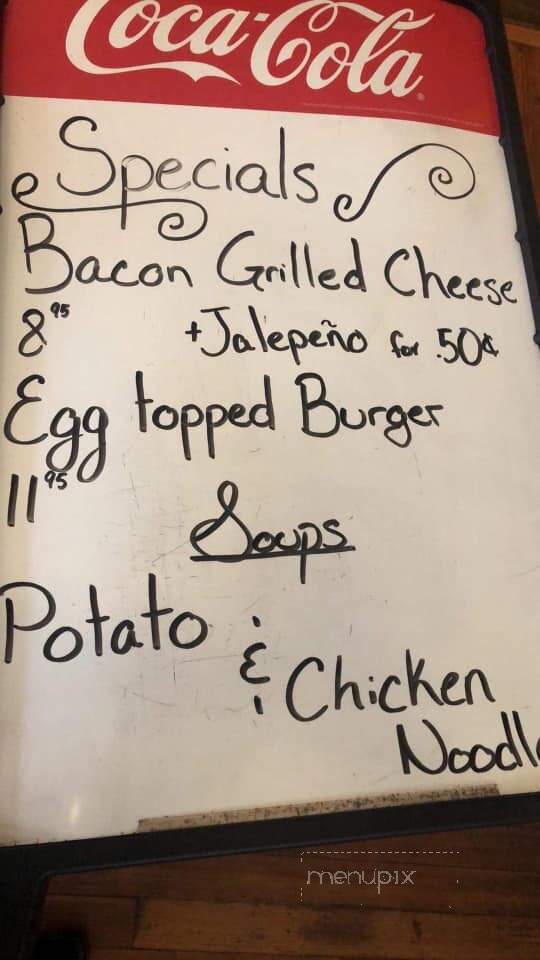 Coca-Cola
Specials
Bacon Grilled Cheese
8 95 +Jalepeño for .50¢
Egg topped Burger
11 95
Soups
Potato
& Chicken
Noodl
menupix